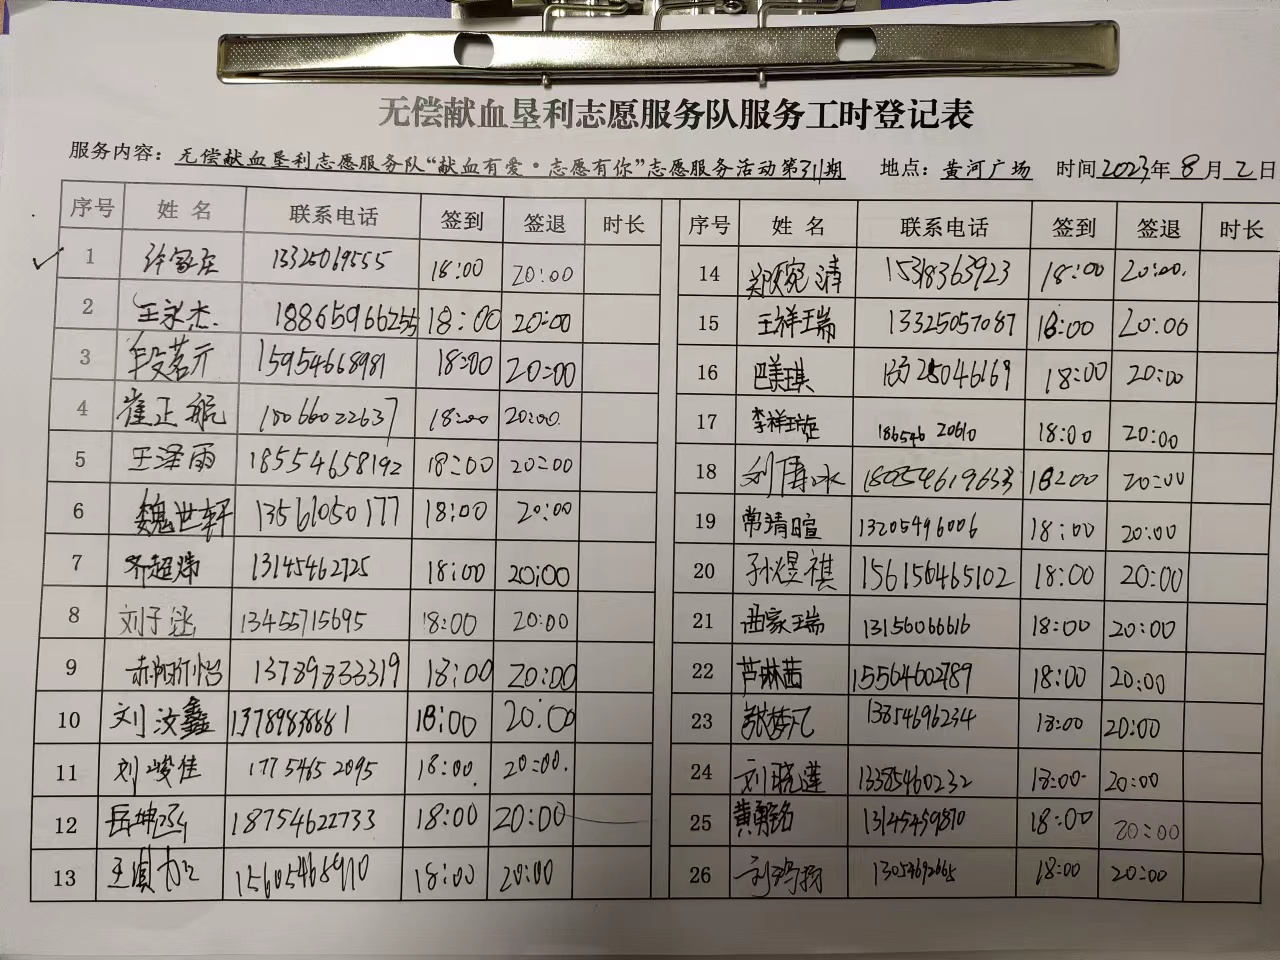 无偿献血垦利志愿服务队服务工时登记表
服务内容：无偿献血垦利志愿服务队“献血有爱·志愿有你”志愿服务活动第311期 地点：黄河广场 时间2023年8月2日
序号 姓名 联系电话 签到 签退 时长
1 13325069555 18:00 20:00
2 王永杰 18865966255 18:00 20:00
3 段茗元 15954668981 18:00 20:00
4 崔正航 15066022637 18:00 20:00
5 王泽雨 18554658192 18:00 20:00
6 魏世轩 13561050177 18:00 20:00
7 齐超炜 13145462725 18:00 20:00
8 刘子涵 13455715695 18:00 20:00
9 13789833319 18:00 20:00
10 刘汶鑫 13789838881 18:00 20:00
11 刘峻佳 17754652095 18:00 20:00
12 岳坤 18754622733 18:00 20:00
13 15605468910 18:00 20:00
序号 姓名 联系电话 签到 签退 时长
14 郑宛清 15318363923 18:00 20:00
15 王祥瑞 13325057087 18:00 20:00
16 巴美琪 18:00 20:00
17 李祥 18654620610 18:00 20:00
18 18:00 20:00
19 常清暄 13205496006 18:00 20:00
20 孙煜祺 156156465102 18:00 20:00
21 曲家瑞 13156066616 18:00 20:00
22 芦琳茜 15564602789 18:00 20:00
23 张梦凡 13854696234 18:00 20:00
24 刘晓莲 13385460232 18:00 20:00
25 黄 13145459870 18:00 20:00
26 13054692665 18:00 20:00